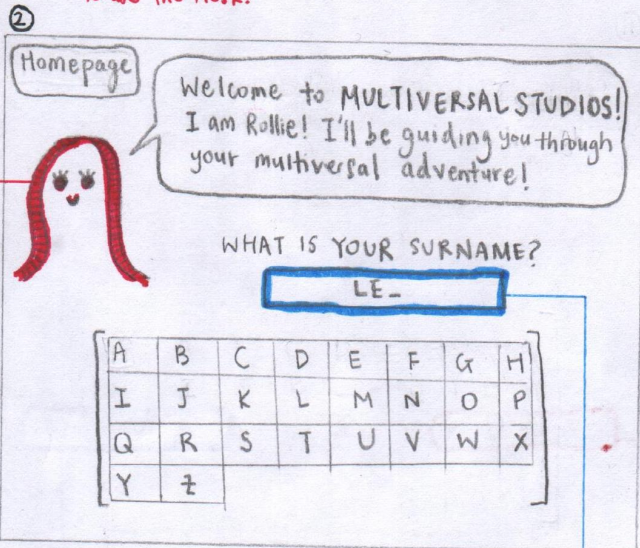 ②
Homepage
Welcome to MULTIVERSAL STUDIOS!
I am Rollie! I'll be guiding you through
your multiversal adventure!
WHAT IS YOUR SURNAME?
LE_
A B C D E F G H
I J K L M N O P
Q R S T U V W X
Y Z